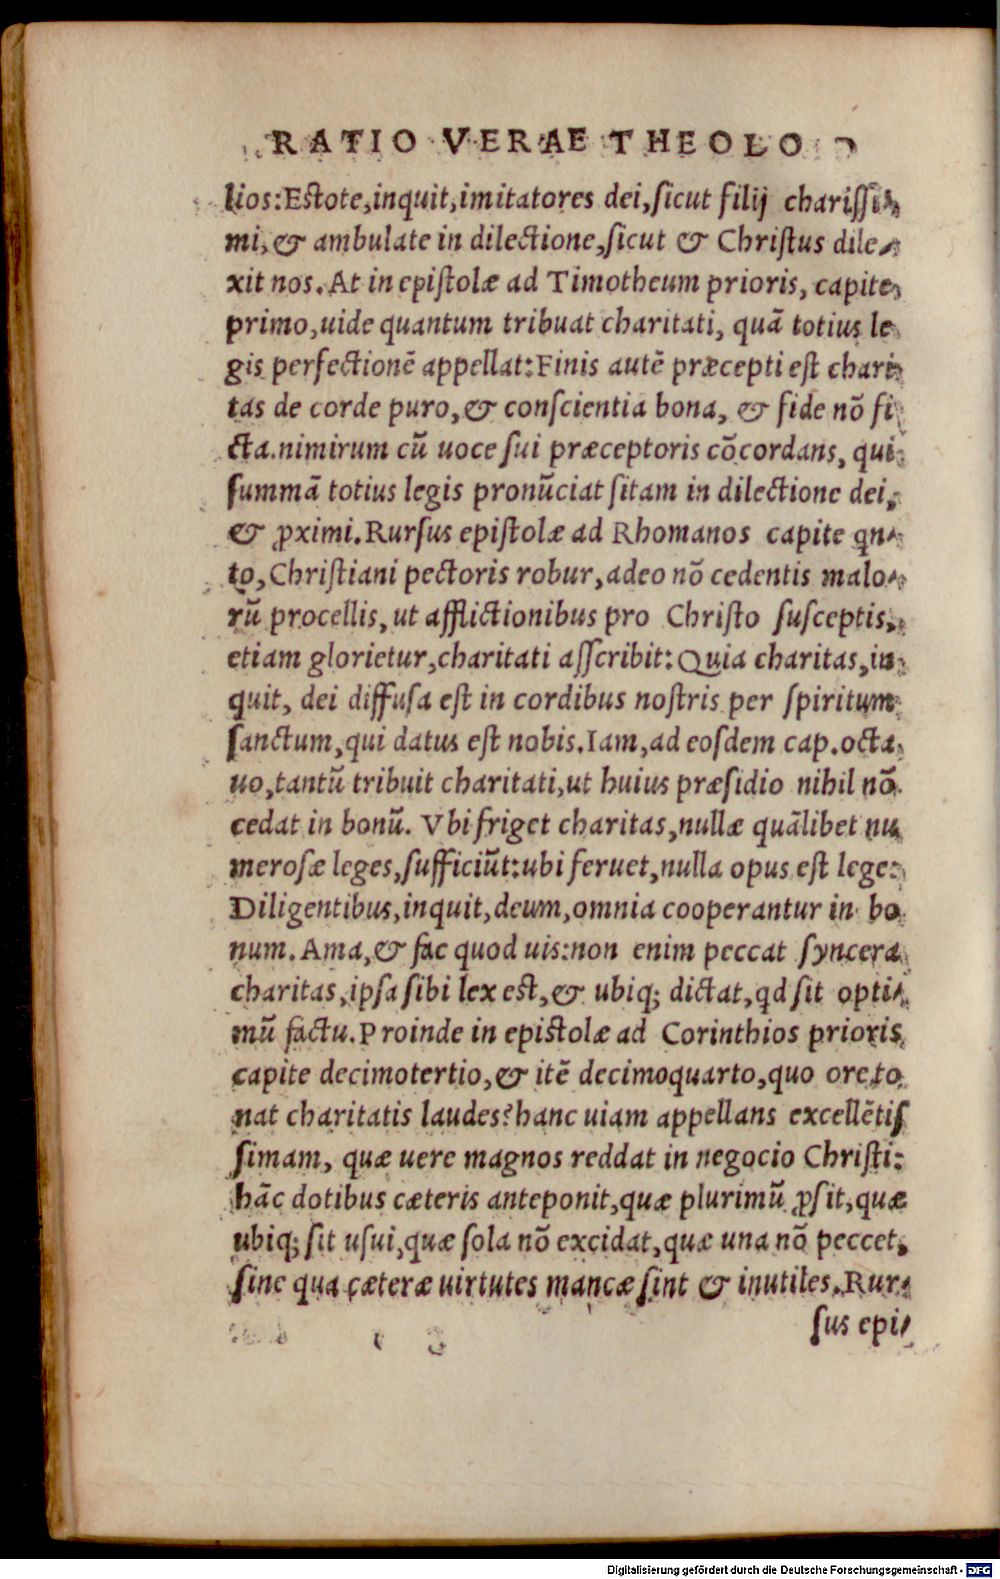 RATIO VERAE THEOLO
lios:Estote,inquit,imitatores dei,sicut filij chariſſi-
mi,& ambulate in dilectione,ſicut & Chriſtus dile-
xit nos.At in epiſtolæ ad Timotheum prioris, capite
primo,uide quantum tribuat charitati, quã totius le
gis perfectionẽ appellat:Finis autẽ præcepti eſt chari
tas de corde puro,& conſcientia bona, & fide nõ fi
cta.nimirum cũ uoce ſui præceptoris cõcordans, qui
ſummã totius legis pronũciat ſitam in dilectione dei,
& ꝓximi.Rurſus epiſtolæ ad Rhomanos capite qn-
to,Chriſtiani pectoris robur,adeo nõ cedentis malo-
rũ procellis,ut afflictionibus pro Chriſto ſuſceptis,
etiam glorietur,charitati aſſcribit:Quia charitas,in
quit, dei diffuſa eſt in cordibus noſtris per ſpiritum
ſanctum,qui datus eſt nobis.Iam,ad eoſdem cap.octa
uo,tantũ tribuit charitati,ut huius præſidio nihil nõ
cedat in bonũ. Vbi friget charitas,nullæ quãlibet nu
meroſæ leges,ſufficiũt:ubi feruet,nulla opus eſt lege:
Diligentibus,inquit,deum,omnia cooperantur in bo
num.Ama,& fac quod uis:non enim peccat ſyncera
charitas,ipſa ſibi lex eſt,& ubiq; dictat,qd ſit opti-
mũ factu.Proinde in epiſtolæ ad Corinthios prioris
capite decimotertio,& itẽ decimoquarto,quo ore to
nat charitatis laudes?hanc uiam appellans excellẽtiſ
ſimam, quæ uere magnos reddat in negocio Chriſti:
hãc dotibus cæteris anteponit,quæ plurimũ ꝓſit,quæ
ubiq; ſit uſui,quæ ſola nõ excidat,quæ una nõ peccet,
ſine qua cæteræ uirtutes mancæ ſint & inutiles.Rur-
ſus epi-
Digitalisierung gefördert durch die Deutsche Forschungsgemeinschaft - DFG